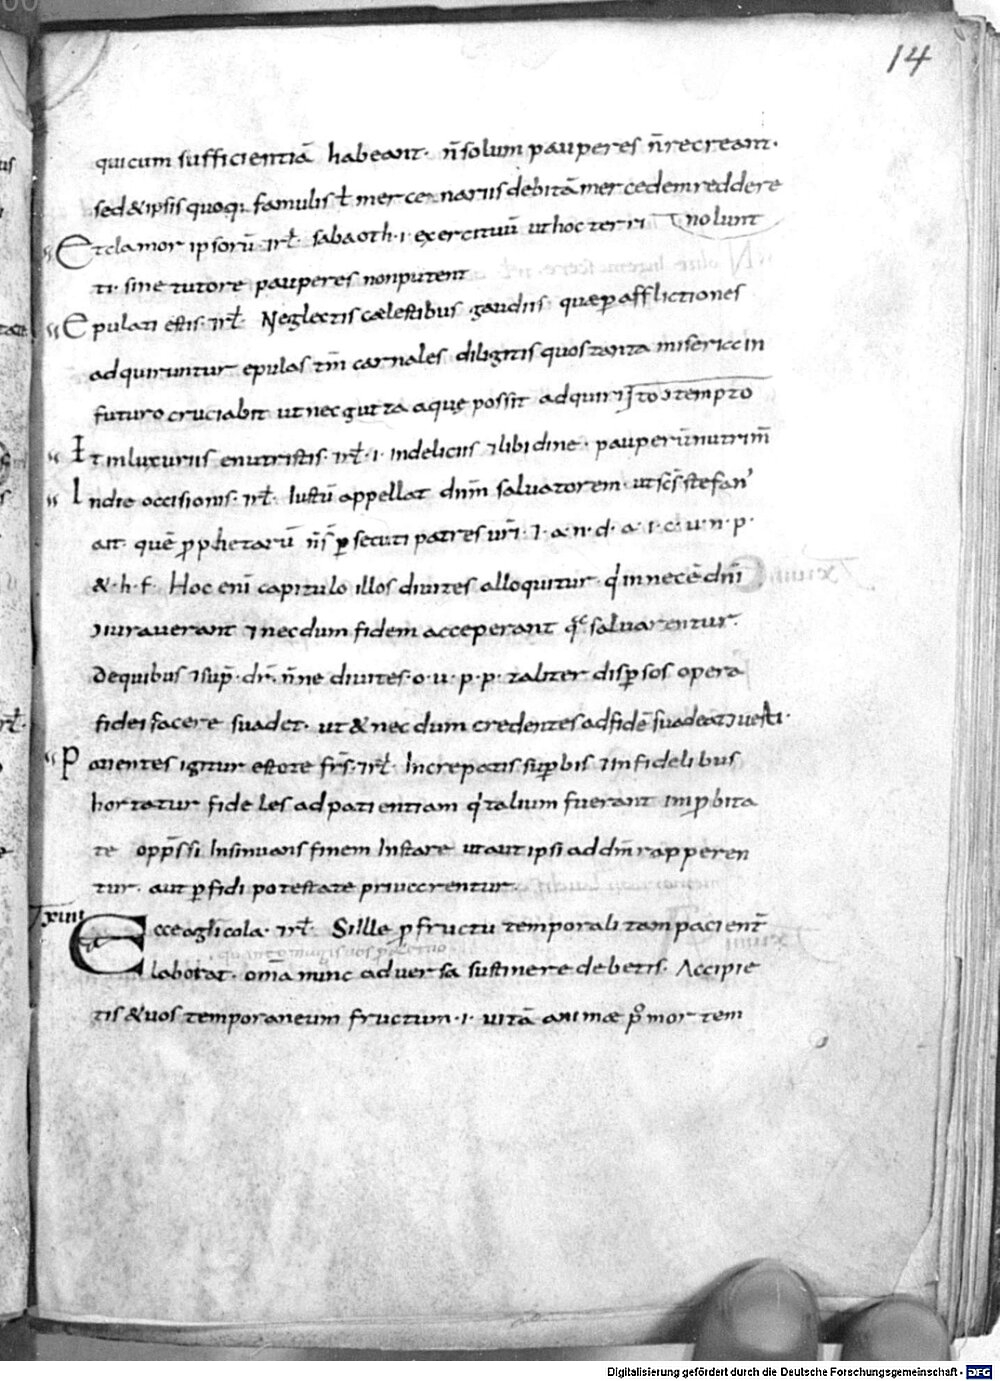 14
qui cum sufficientiā habeant · n̄ solum pauperes n̄ recreant ·
sed & ipsis quoq; famulis ƚ mercennariis debitā mercedem reddere
nolunt
Et clamor ipsorū · ⁊rƚ · sabaoth · i · exercituū ut hoc terri
ti · sine tutore pauperes non putent
Epulati estis · ⁊rƚ · Neglectis cælestibus gaudiis quæ ꝑ afflictiones
adquiruntur epulas tm̄ carnales diligitis quos tanta miseriæ in
futuro cruciabit ut nec gutta aquę possit adquiri
It in luxuriis enutristis · ⁊rƚ · i · in deliciis ⁊ libidine · pauperū nutrim̄
In die occisionis · ⁊rƚ · Iustū appellat dnm̄ saluatorem · ut scs̄ stefan'
ait · quē prophetarū n̄s̄ ꝑsecuti patres ur̄i · ⁊ · a · n · d · a · i · c · u · n · p ·
& · h · f · Hoc eni capitulo illos diuites alloquitur · q' in necē dni
ↄiurauerant ⁊ necdum fidem acceperant saluarentur ·
De quibus ⁊ sup̄ · dr̄ · n̄ne diuites · o · u · p · p · taliter disꝑsos opera
fidei facere suadet · ut & necdum credentes ad fidē suadeat
Patientes igitur estote fr̄s · ⁊rƚ · Increpatis suꝑbis ⁊ infidelibus
hortatur fideles ad patientiam q' talium fuerant improbita
te opp̄ssi Insinuans finem Instare ut aut ipsi ad dm̄ raꝑperen
tur · aut ꝑfidi potestate priuarentur ·
Ecce agricola · ⁊rƚ · Si ille ꝓ fructu temporali tam pacient̄
laborat · om̄a nunc aduersa sustinere debetis · Accipie
tis & uos temporaneum fructum · i · uitā animæ p° mortem
Digitalisierung gefördert durch die Deutsche Forschungsgemeinschaft - DFG